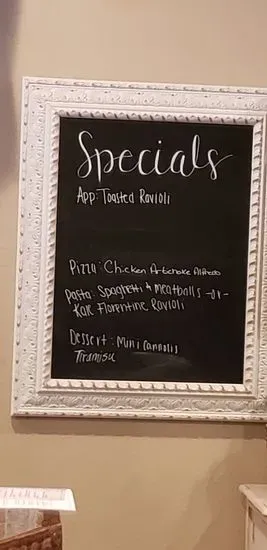 Specials
App: Toasted Ravioli
Pizza: Chicken Artichoke Alfredo
Pasta: Spaghetti & Meatballs -or-
Kale Florentine Ravioli
Dessert: Mini Cannolis
Tiramisu